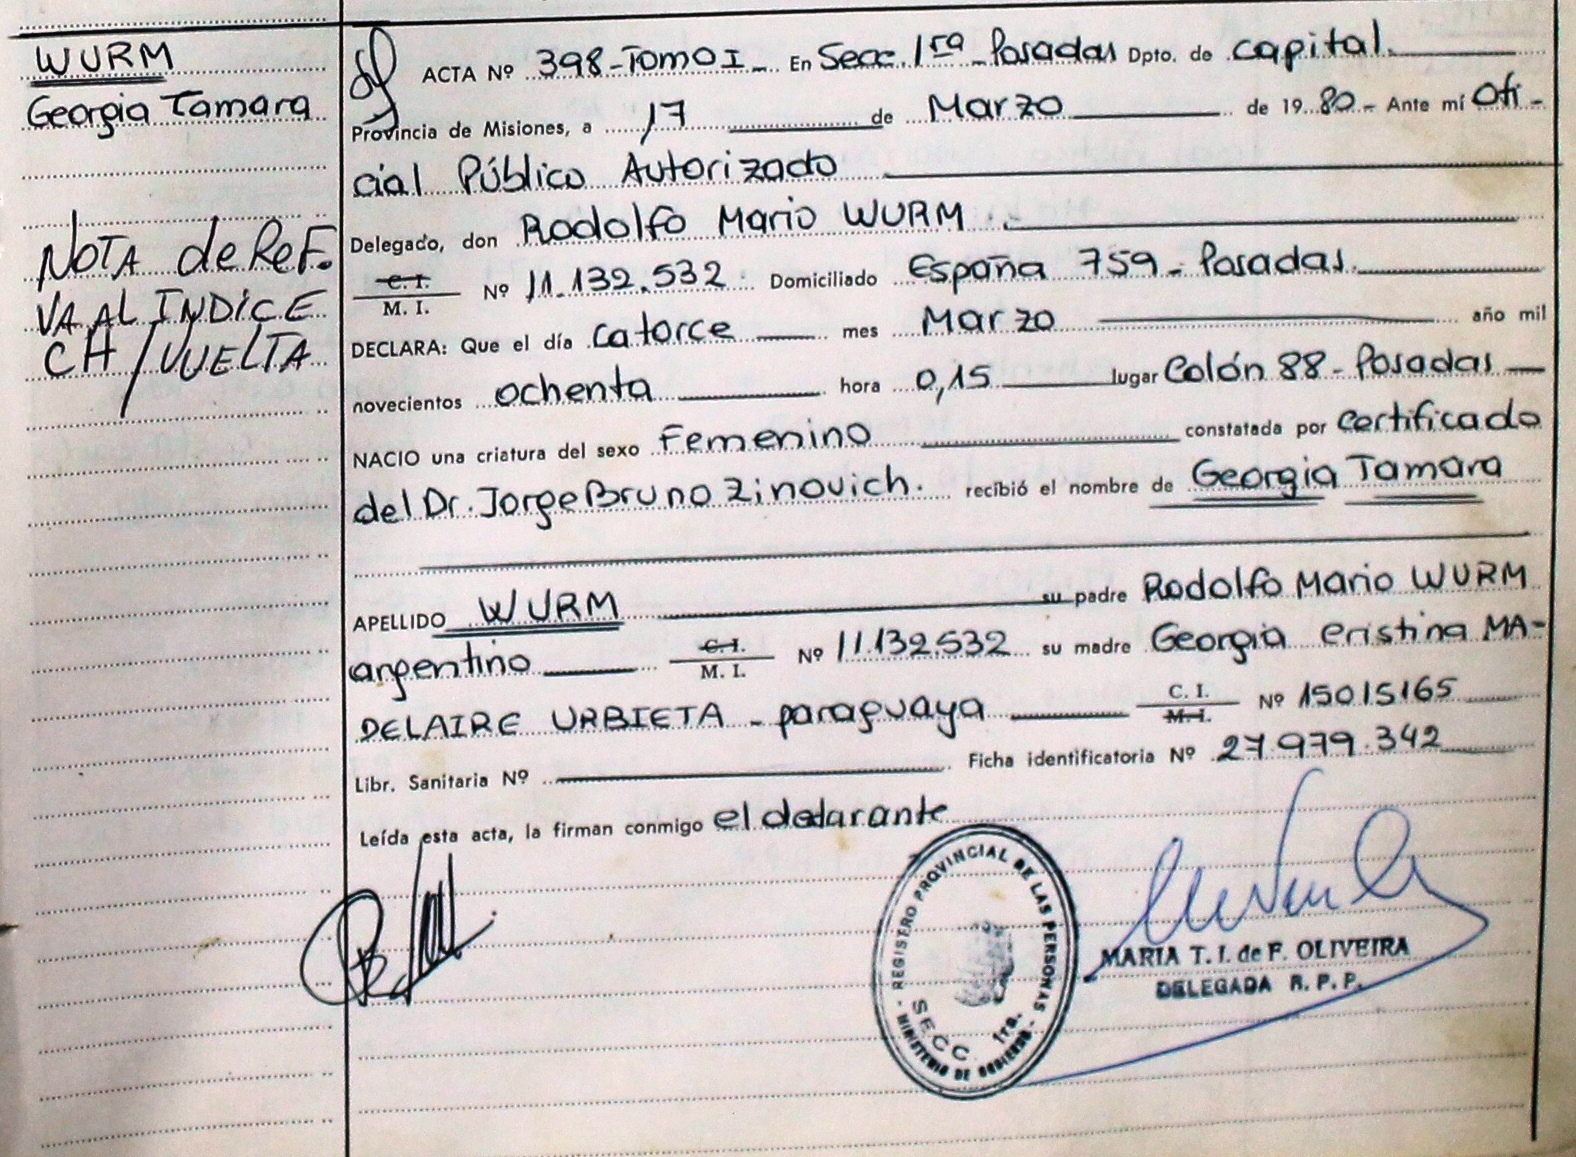 WURM
Georgia Tamara
NOTA de REF.
VA AL INDICE
CH/VUELTA
ACTA Nº 398-Tomo I_ En Secc. 1ra - Posadas Dpto. de capital.
Provincia de Misiones, a 17 de Marzo de 1980.- Ante mí Ofi-
cial Público Autorizado
Delegado, don Rodolfo Mario WURM.
C. I.
M. I. Nº 11.132.532. Domiciliado España 759- Posadas.
DECLARA: Que el día catorce mes Marzo año mil
novecientos ochenta hora 0,15 lugar Colón 88- Posadas
NACIO una criatura del sexo Femenino constatada por certificado
del Dr. Jorge Bruno Zinovich. recibió el nombre de Georgia Tamara
APELLIDO WURM su padre Rodolfo Mario WURM
argentino C. I.
M. I. Nº 11.132.532 su madre Georgia Cristina MA-
DELAIRE URBIETA - paraguaya C. I.
M. I. Nº 15015165
Libr. Sanitaria Nº Ficha identificatoria Nº 27.979.342
Leída esta acta, la firman conmigo el declarante
REGISTRO PROVINCIAL DE LAS PERSONAS
SECC. 1ra.
MINISTERIO DE GOBIERNO
MARIA T. I. de F. OLIVEIRA
DELEGADA R. P. P.